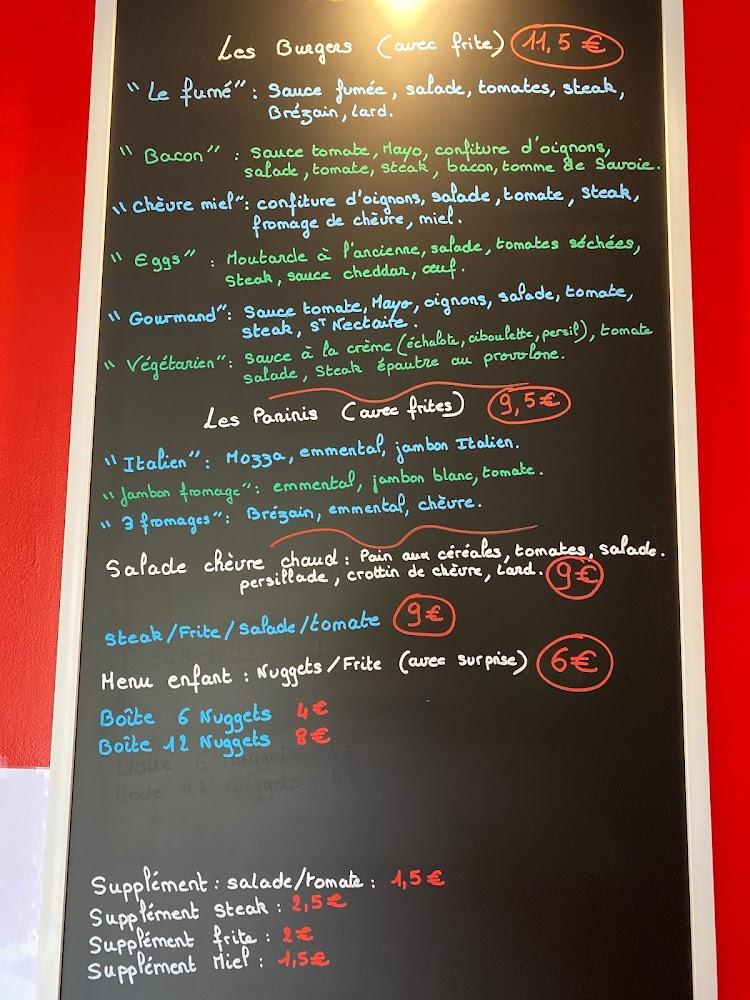 Les Burgers (avec frite) 11,5 €
"Le fumé" : Sauce fumée, salade, tomates, steak,
Brézain, Lard.
"Bacon" : Sauce tomate, Mayo, confiture d'oignons,
salade, tomate, steak, bacon, tomme de Savoie.
"Chèvre miel" : confiture d'oignons, salade, tomate, steak,
fromage de chèvre, miel.
"Eggs" : Moutarde à l'ancienne, salade, tomates séchées,
steak, sauce cheddar, œuf.
"Gourmand" : Sauce tomate, Mayo, oignons, salade, tomate,
steak, ST Nectaire.
"Végétarien" : Sauce à la crème (échalote, ciboulette, persil), tomate
salade, Steak épautre au provolone.
Les Paninis (avec frites) 9,5 €
"Italien" : Mozza, emmental, jambon Italien.
"Jambon fromage" : emmental, jambon blanc, tomate.
"3 fromages" : Brézain, emmental, chèvre.
Salade chèvre chaud : Pain aux céréales, tomates, salade.
persillade, crottin de chèvre, Lard. 9€
Steak/Frite/Salade/tomate 9€
Menu enfant : Nuggets/Frite (avec surprise) 6€
Boîte 6 Nuggets 4€
Boîte 12 Nuggets 8€
Boîte 6 nuggets 4€
Boîte 12 nuggets
Supplément : salade/tomate : 1,5€
Supplément steak : 2,5€
Supplément frite : 2€
Supplément Miel : 1,5€